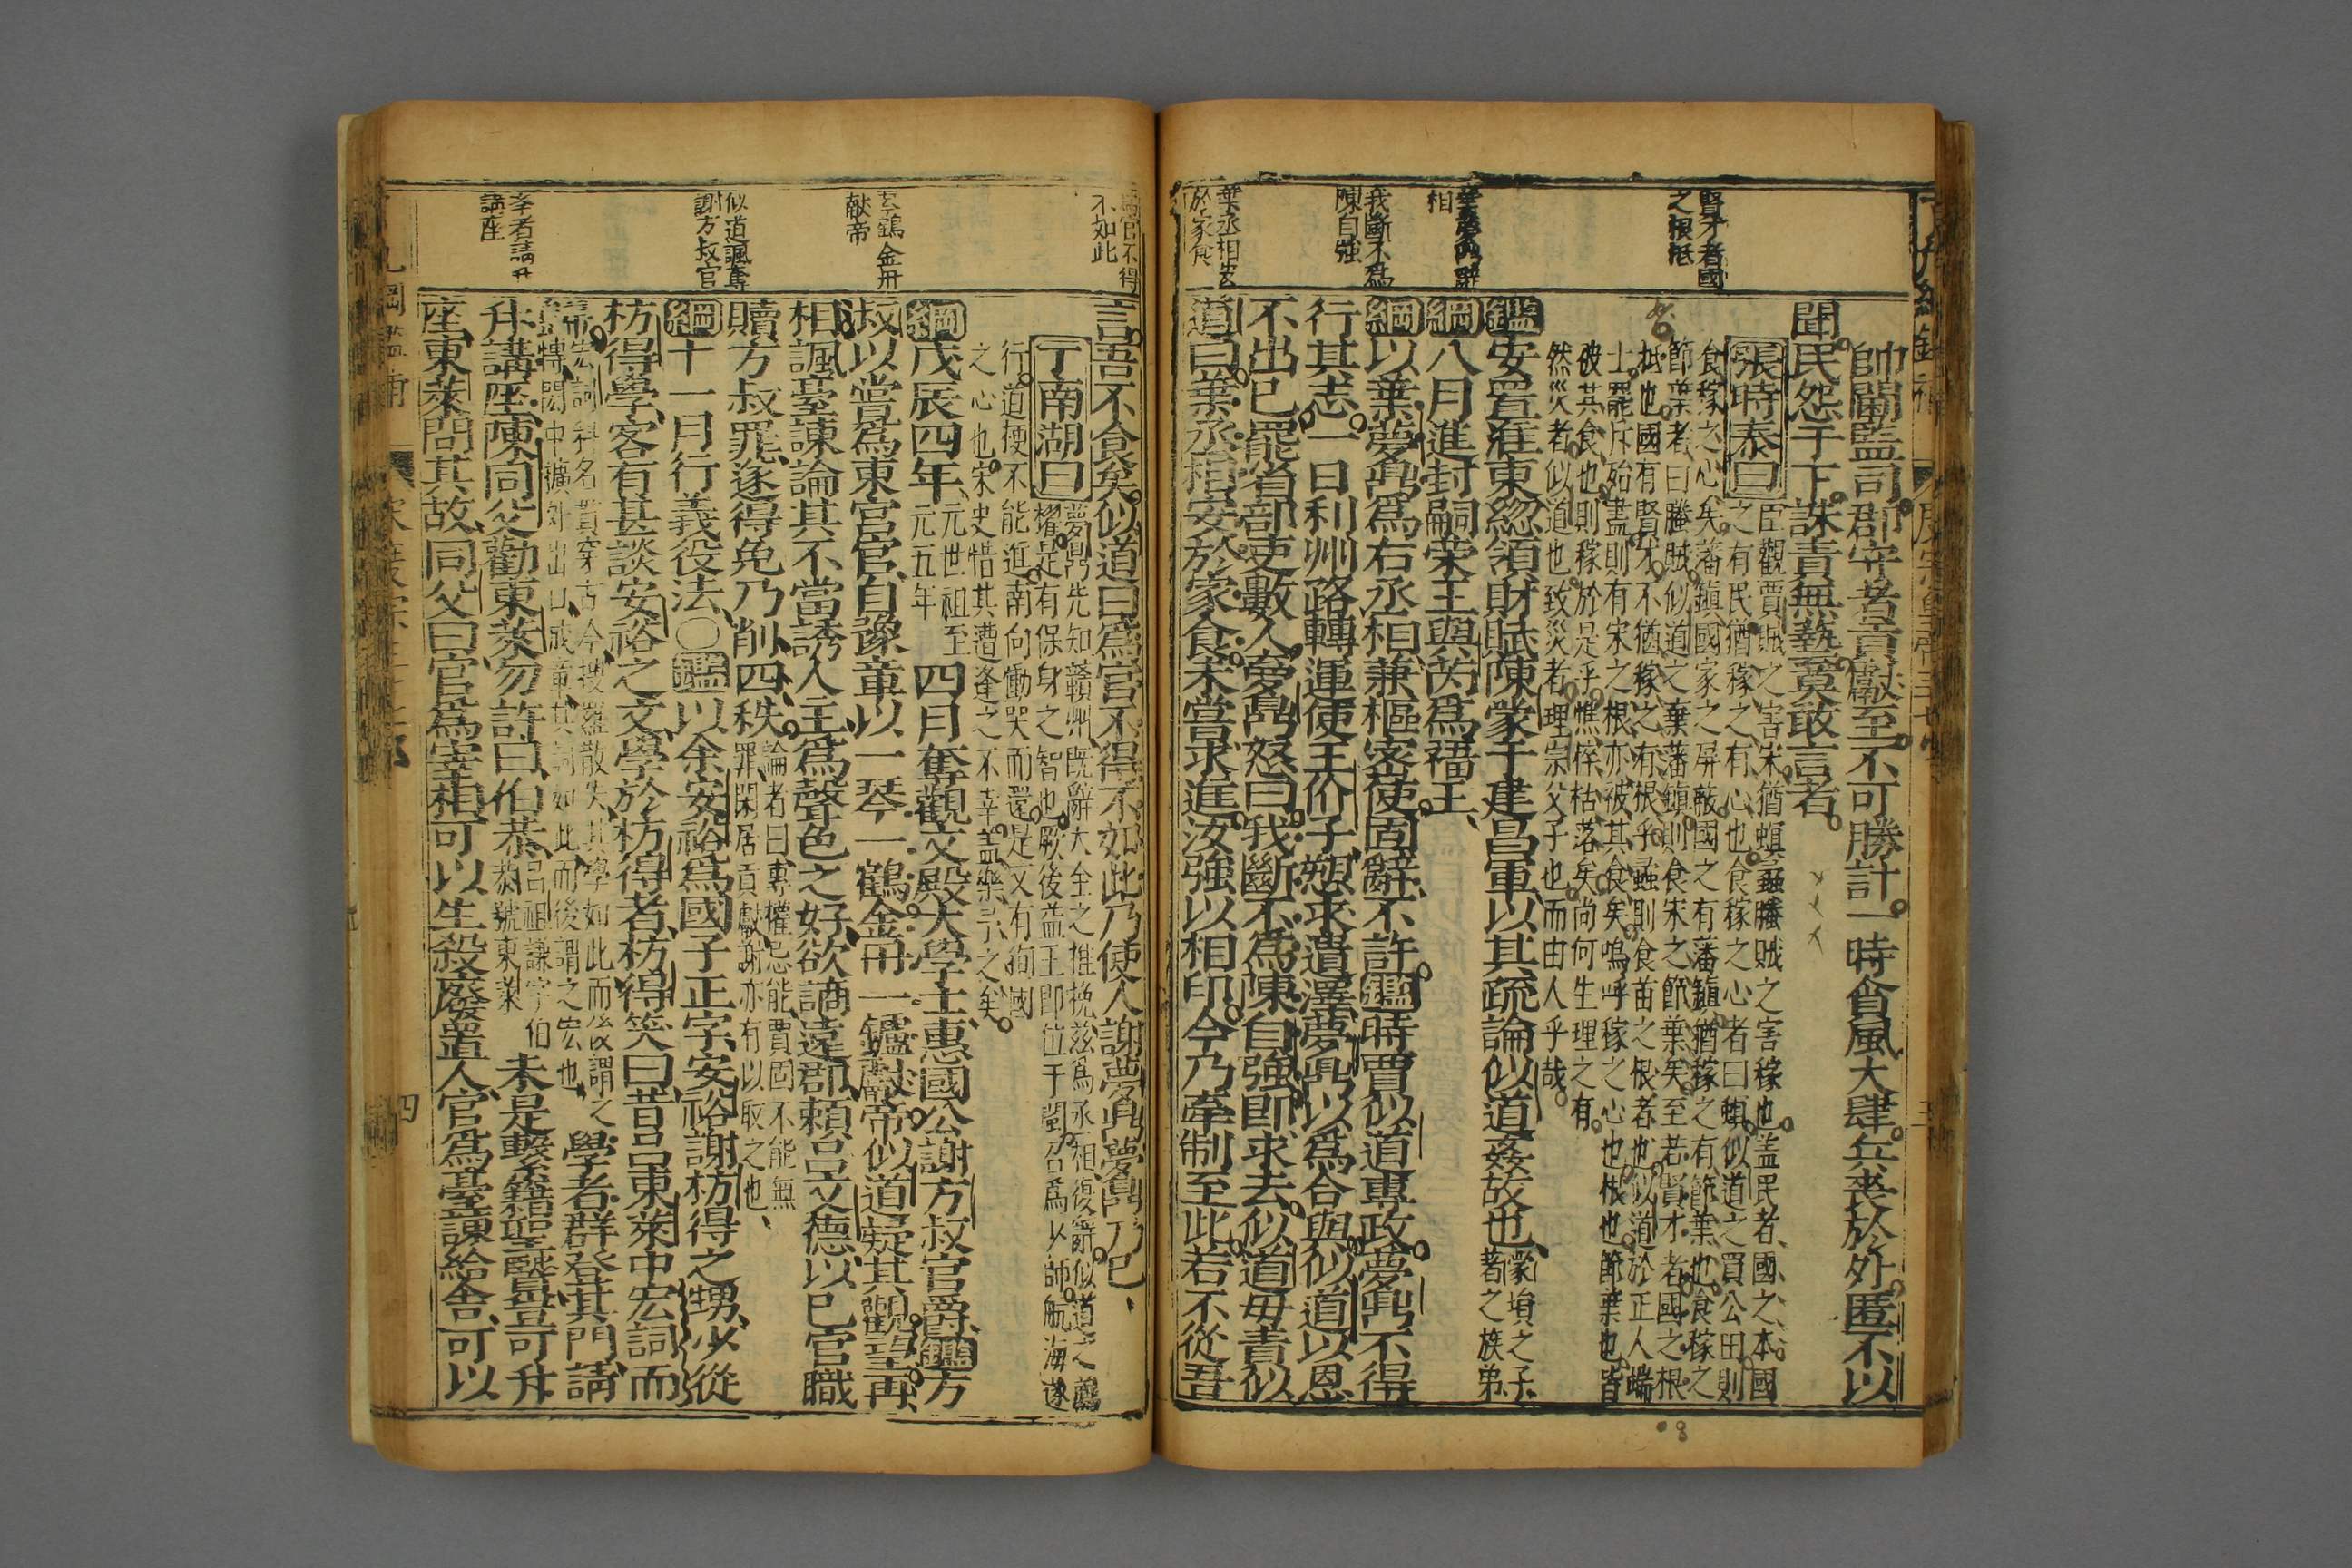 賢才者國
之根柢
葉夢鼎辭
相
我斷不爲
陳自強
葉丞相安
於家食
帥閫監司郡守者貢獻至不可勝計一時貪風大肆兵喪於外匿不以
聞民怨于下誅責無藝莫敢言者
張時泰曰
臣觀賈賊之害宋猶螟螽螣賊之害稼也蓋民者國之本國
之有民猶稼之有心也食稼之心者曰螟似道之買公田則
食稼之心矣藩鎮國家之屏蔽國之有藩鎮猶稼之有節葉也食稼之
節葉者曰螣賊似道之棄藩鎮則食宋之節葉矣至若賢才者國之根
柢也國有賢才不猶稼之有根乎蟊則食苗之根者也似道於正人端
士罷斥殆盡則有宋之根亦被其食矣嗚呼稼之心也根也節葉也皆
被其食也則稼於是乎憔悴枯落矣尚何生理之有
然災者似道也致災者理宗父子也而由人乎哉
鑑安置淮東總領財賦陳蒙于建昌軍以其疏論似道姦故也
蒙塤之子
著之族弟
綱八月進封嗣榮王與芮爲福王
綱以葉夢鼎爲右丞相兼樞密使固辭不許鑑時賈似道專政夢鼎不得
行其志一日利州路轉運使王价子愬求遺澤夢鼎以爲合與似道以恩
不出已罷省部吏數人夢鼎怒曰我斷不爲陳自強即求去似道毋責似
道曰葉丞相安於家食未嘗求進汝強以相印今乃牽制至此若不從吾
爲官不得
不如此
琴鶴金丹
獻帝
似道諷奪
謝方叔官
李者請升
講座
言吾不食矣似道曰爲官不得不如此乃使人謝夢鼎夢鼎乃已
丁南湖曰
夢鼎先知贛州既辭大全之推挽茲爲丞相復辭似道之薦
擢是有保身之智也厥後益王即位于閩召爲少師航海遂
行道梗不能進南向慟哭而還是又有徇國
之心也宋史惜其遭逢之不幸蓋與之矣
綱戊辰四年
元世祖至
元五年
四月奪觀文殿大學士惠國公謝方叔官爵鑑方
叔以嘗爲東宮官自豫章以一琴一鶴金丹一鑪獻帝似道疑其觀望再
相諷臺諫論其不當誘人主爲聲色之好欲謫遠郡賴呂文德以己官職
贖方叔罪遂得免乃削四秩
論者曰專權忌能賈固不能無
罪閑居貢獻謝亦有以取之也
綱十一月行義役法〇鑑以余安裕爲國子正字安裕謝枋得之甥少從
枋得學客有甚談安裕之文學於枋得者枋得笑曰昔呂東萊中宏詞而
歸
宏詞科名貫穿古今搜羅散失其學如此而後謂之
閎中擴外出口成章其詞如此而後謂之宏也
學者群登其門請
升講座陳同父勸東萊勿許曰伯恭
呂祖謙字伯
恭號東萊
未是繫籍聖賢豈可升
座東萊問其故同父曰官爲宰相可以生殺廢置人官爲臺諫給舍可以
四